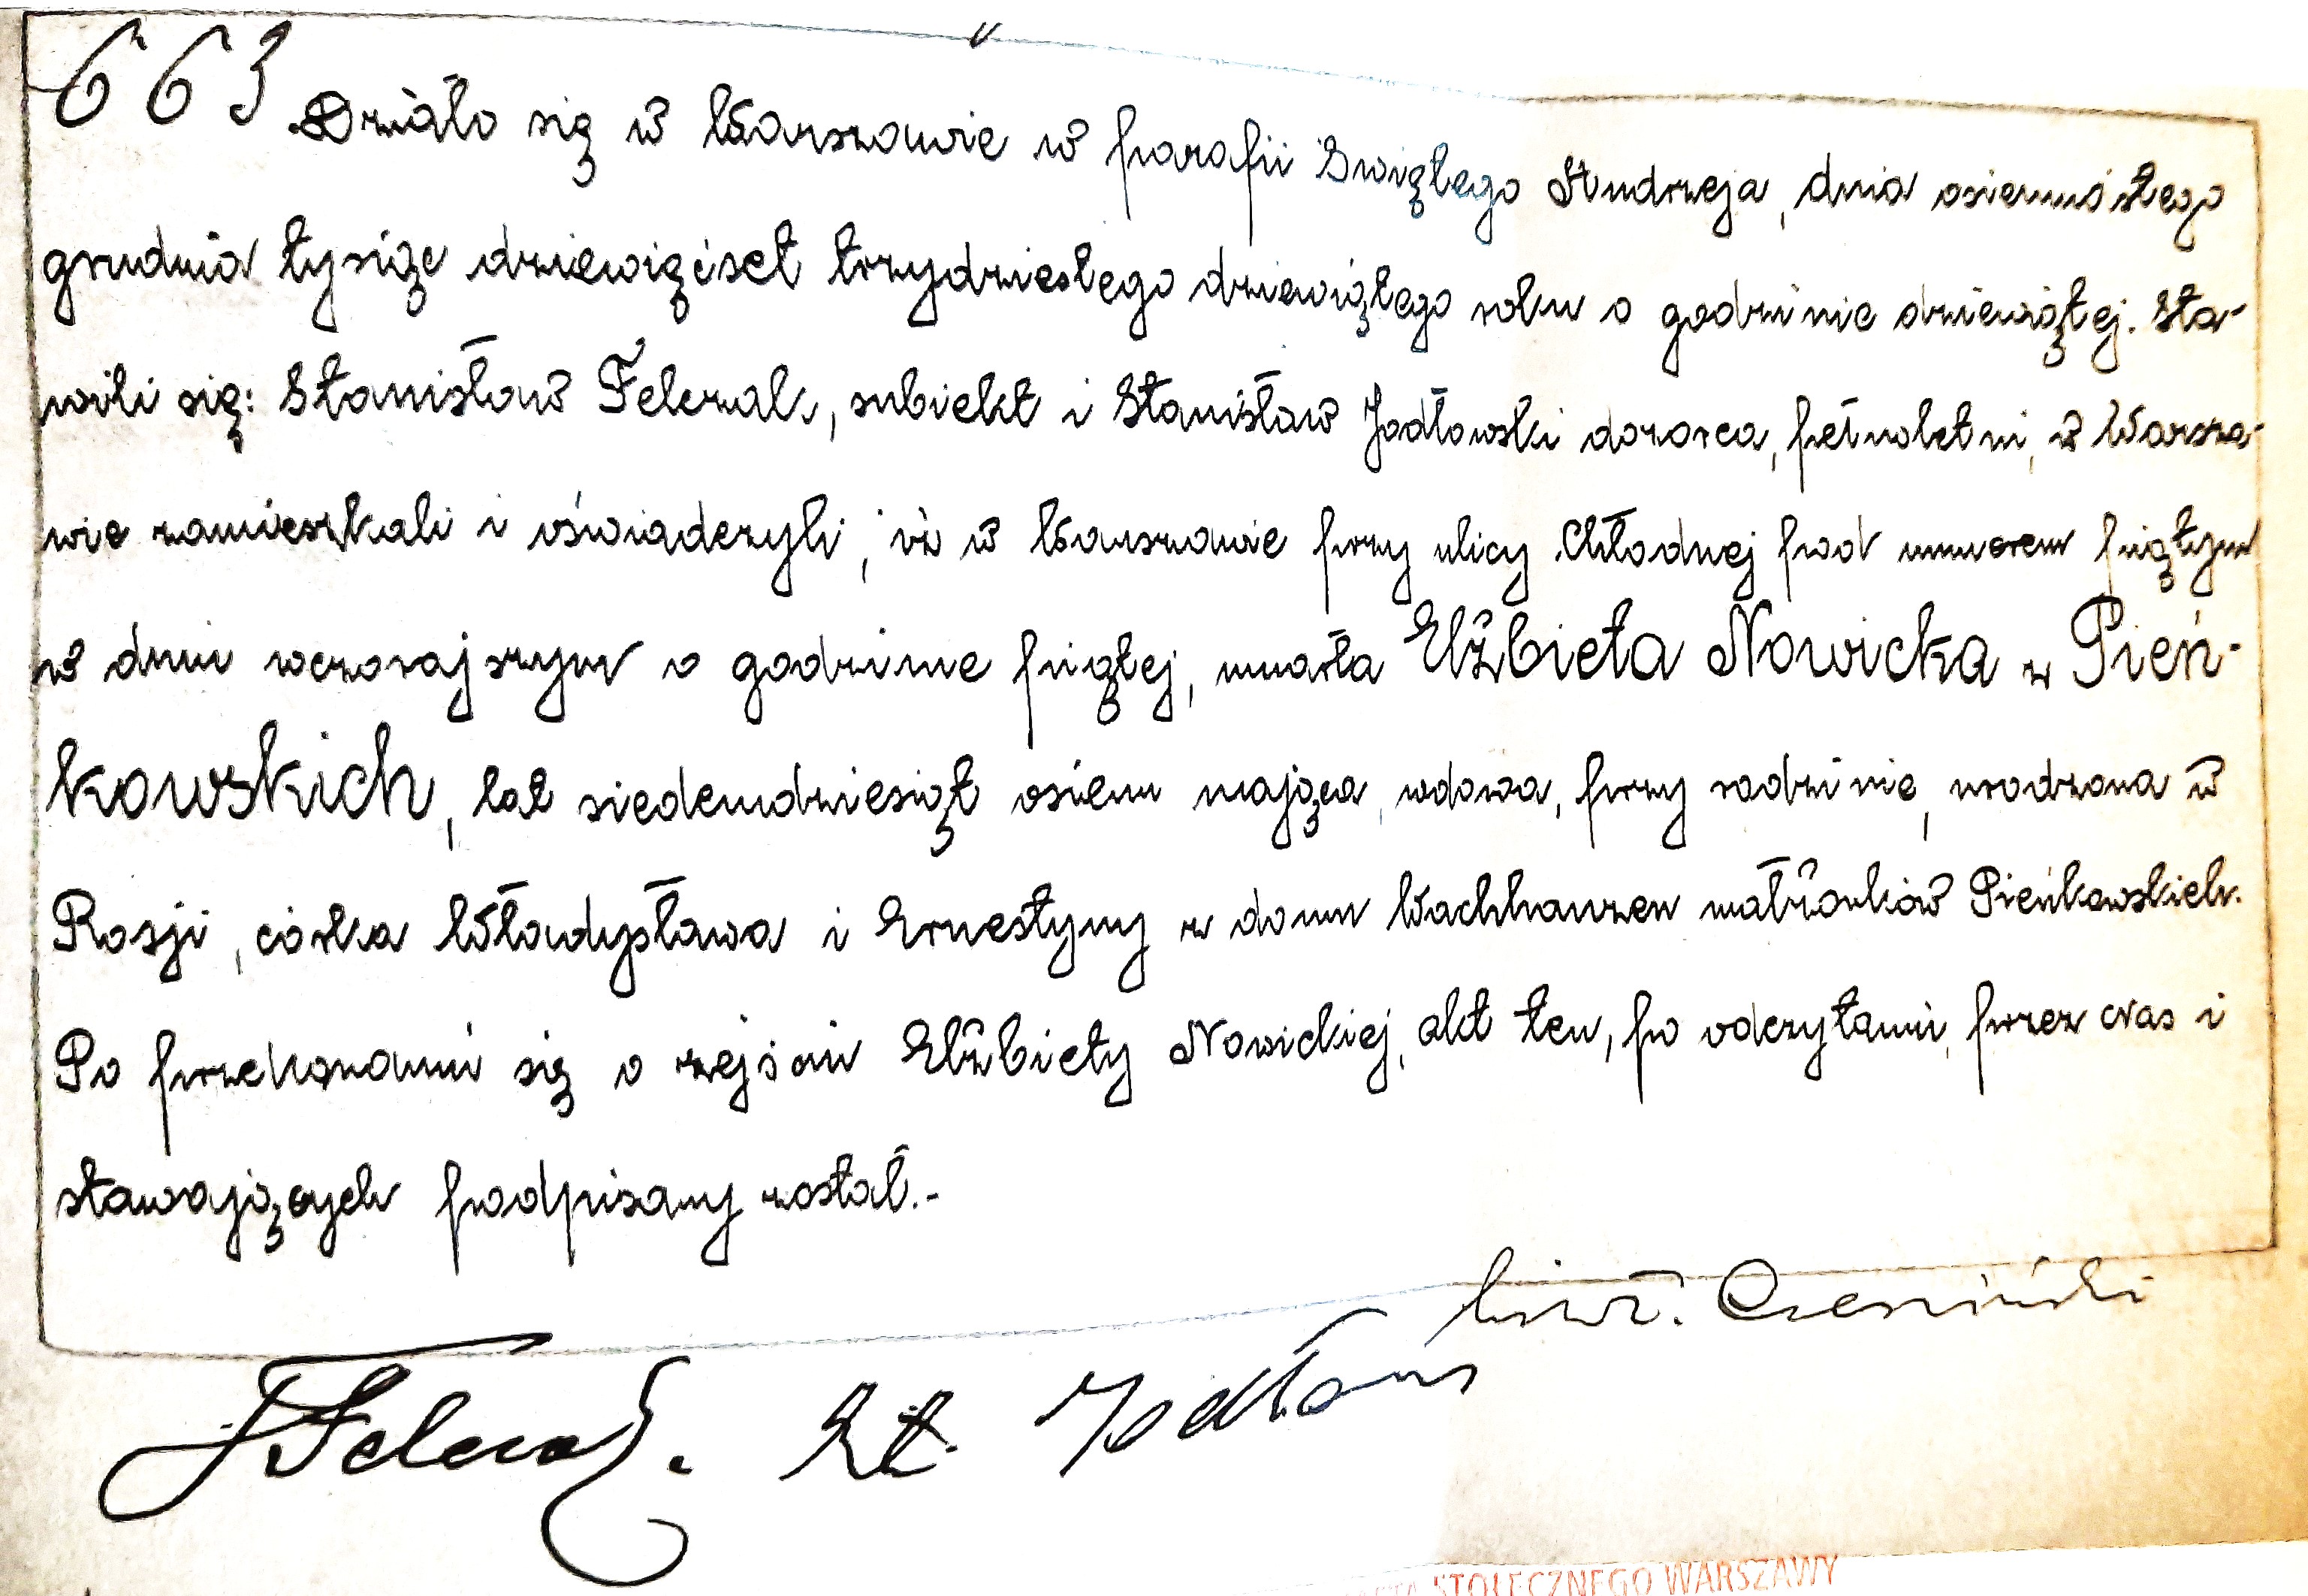 663 Działo się w Warszawie w parafii Świętego Andrzeja, dnia osiemnastego
grudnia tysiąc dziewięćset trzydziestego dziewiątego roku o godzinie dziewiątej. Sta-
wili się: Stanisław Felczak, subiekt i Stanisław Jadłowski dozorca, pełnoletni, w Warsza-
wie zamieszkali i oświadczyli, iż w Warszawie przy ulicy Chłodnej pod numerem piątym
w dniu wczorajszym o godzinie piątej, umarła Elżbieta Nowicka z Pień-
kowskich, lat siedemdziesiąt osiem mająca, wdowa, przy rodzinie, urodzona w
Rosji, córka Władysława i Ernestyny z domu Wachhauzen małżonków Pieńkowskich.
Po przekonaniu się o zejściu Elżbiety Nowickiej, akt ten, po odczytaniu, przez nas i
stawających podpisany został.-
Felczak. St. Jadłows
STOŁECZNEGO WARSZAWY